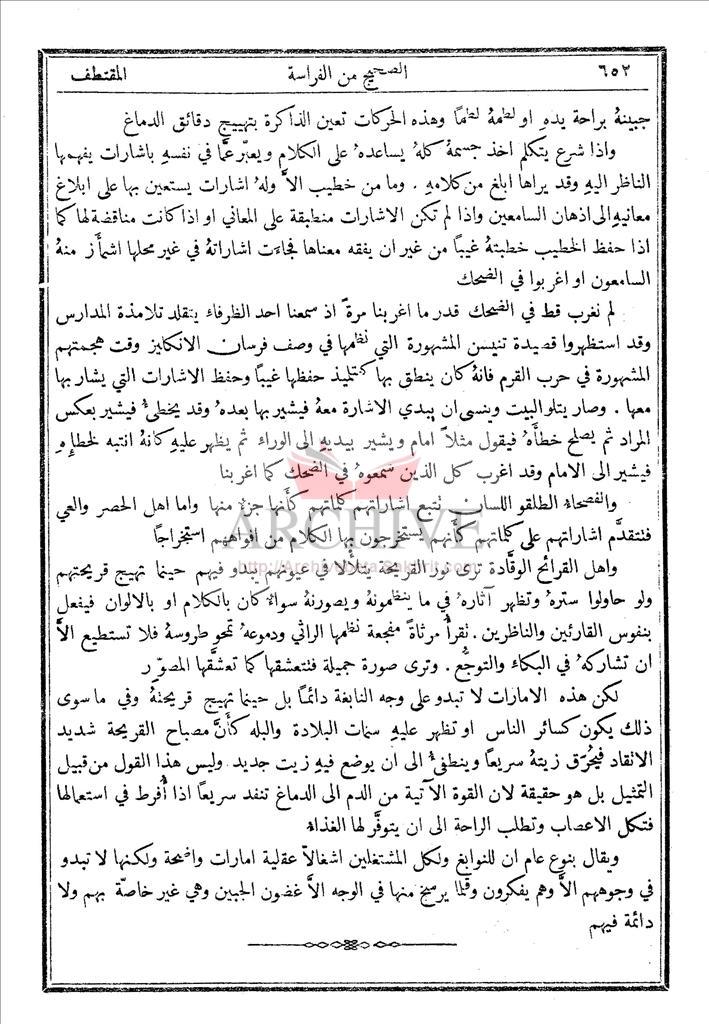 ٦٥٢ الصحيح من الفراسة المقتطف
جبينهُ براحة يدهِ او لطمهُ لطماً وهذه الحركات تعين الذاكرة بتهييج دقائق الدماغ
واذا شرع يتكلم اخذ جسمهُ كلهُ يساعده على الكلام ويعبّر عمَّا في نفسهِ باشارات يفهمها
الناظر اليهِ وقد يراها ابلغ من كلامهِ . وما من خطيب الاَّ ولهُ اشارات يستعين بها على ابلاغ
معانيهِ الى اذهان السامعين واذا لم تكن الاشارات منطبقة على المعاني او اذا كانت مناقضة لها كما
اذا حفظ الخطيب خطبتهُ غيباً من غير ان يفقه معناها فجاءَت اشاراتهُ في غير محلها اشمأَز منهُ
السامعون او اغربوا في الضحك
لم نغرب قط في الضحك قدر ما اغربنا مرةً اذ سمعنا احد الظرفاء يتقلد تلامذة المدارس
وقد استظهروا قصيدة تنيسن المشهورة التي نظمها في وصف فرسان الانكليز وقت هجمتهم
المشهورة في حرب القرم فانهُ كان ينطق بها كتلميذ حفظها غيباً وحفظ الاشارات التي يشار بها
معها . وصار يتلو البيت وينسى ان يبدي الاشارة معهُ فيشير بها بعدهُ وقد يخطئُ فيشير بعكس
المراد ثم يصلح خطأَهُ فيقول مثلاً امام ويشير بيديهِ الى الوراء ثم يظهر عليهِ كانهُ انتبه لخطإِهِ
فيشير الى الامام وقد اغرب كل الذين سمعوهُ في الضحك كما اغربنا
والفصحاءُ الطلقو اللسان تتبع اشاراتهم كلماتهم كأَنها جزءٌ منها واما اهل الحصر والعي
فتتقدَّم اشاراتهم على كلماتهم كأَنهم يستخرجون بها الكلام من افواههم استخراجاً
ARCHIVE
واهل القرائح الوقَّادة ترى نور القريحة يتلأْلأُ في عيونهم يبدو فيهم حينما تهيج قريحتهم
ولو حاولوا سترهُ وتظهر آثارهُ في ما ينظمونهُ ويصورنهُ سواءٌ كان بالكلام او بالالوان فيفعل
بنفوس القارئين والناظرين . نقرأُ مرثاةً مفجعة نظمها الراثي ودموعهُ تمحو طروسهُ فلا تستطيع الاَّ
ان تشاركهُ في البكاء والتوجُّع . وترى صورة جميلة فتتعشقها كما تعشَّقها المصوّر
لكن هذه الامارات لا تبدو على وجه النابغة دائماً بل حينما تهيج قريحتهُ وفي ما سوى
ذلك يكون كسائر الناس او تظهر عليهِ سمات البلادة والبله كأَنَّ مصباح القريحة شديد
الاتقاد فيحرّق زيتهُ سريعاً وينطفئُ الى ان يوضع فيهِ زيت جديد وليس هذا القول من قبيل
التمثيل بل هو حقيقة لان القوة الآتية من الدم الى الدماغ تنفد سريعاً اذا أُفرط في استعمالها
فتكل الاعصاب وتطلب الراحة الى ان يتوفَّر لها الغذاءُ
ويقال بنوع عام ان للنوابغ ولكل المشتغلين اشغالاً عقلية امارات واضحة ولكنها لا تبدو
في وجوههم الاَّ وهم يفكرون وقلما يرسخ منها في الوجه الاَّ غضون الجبين وهي غير خاصّة بهم ولا
دائمة فيهم